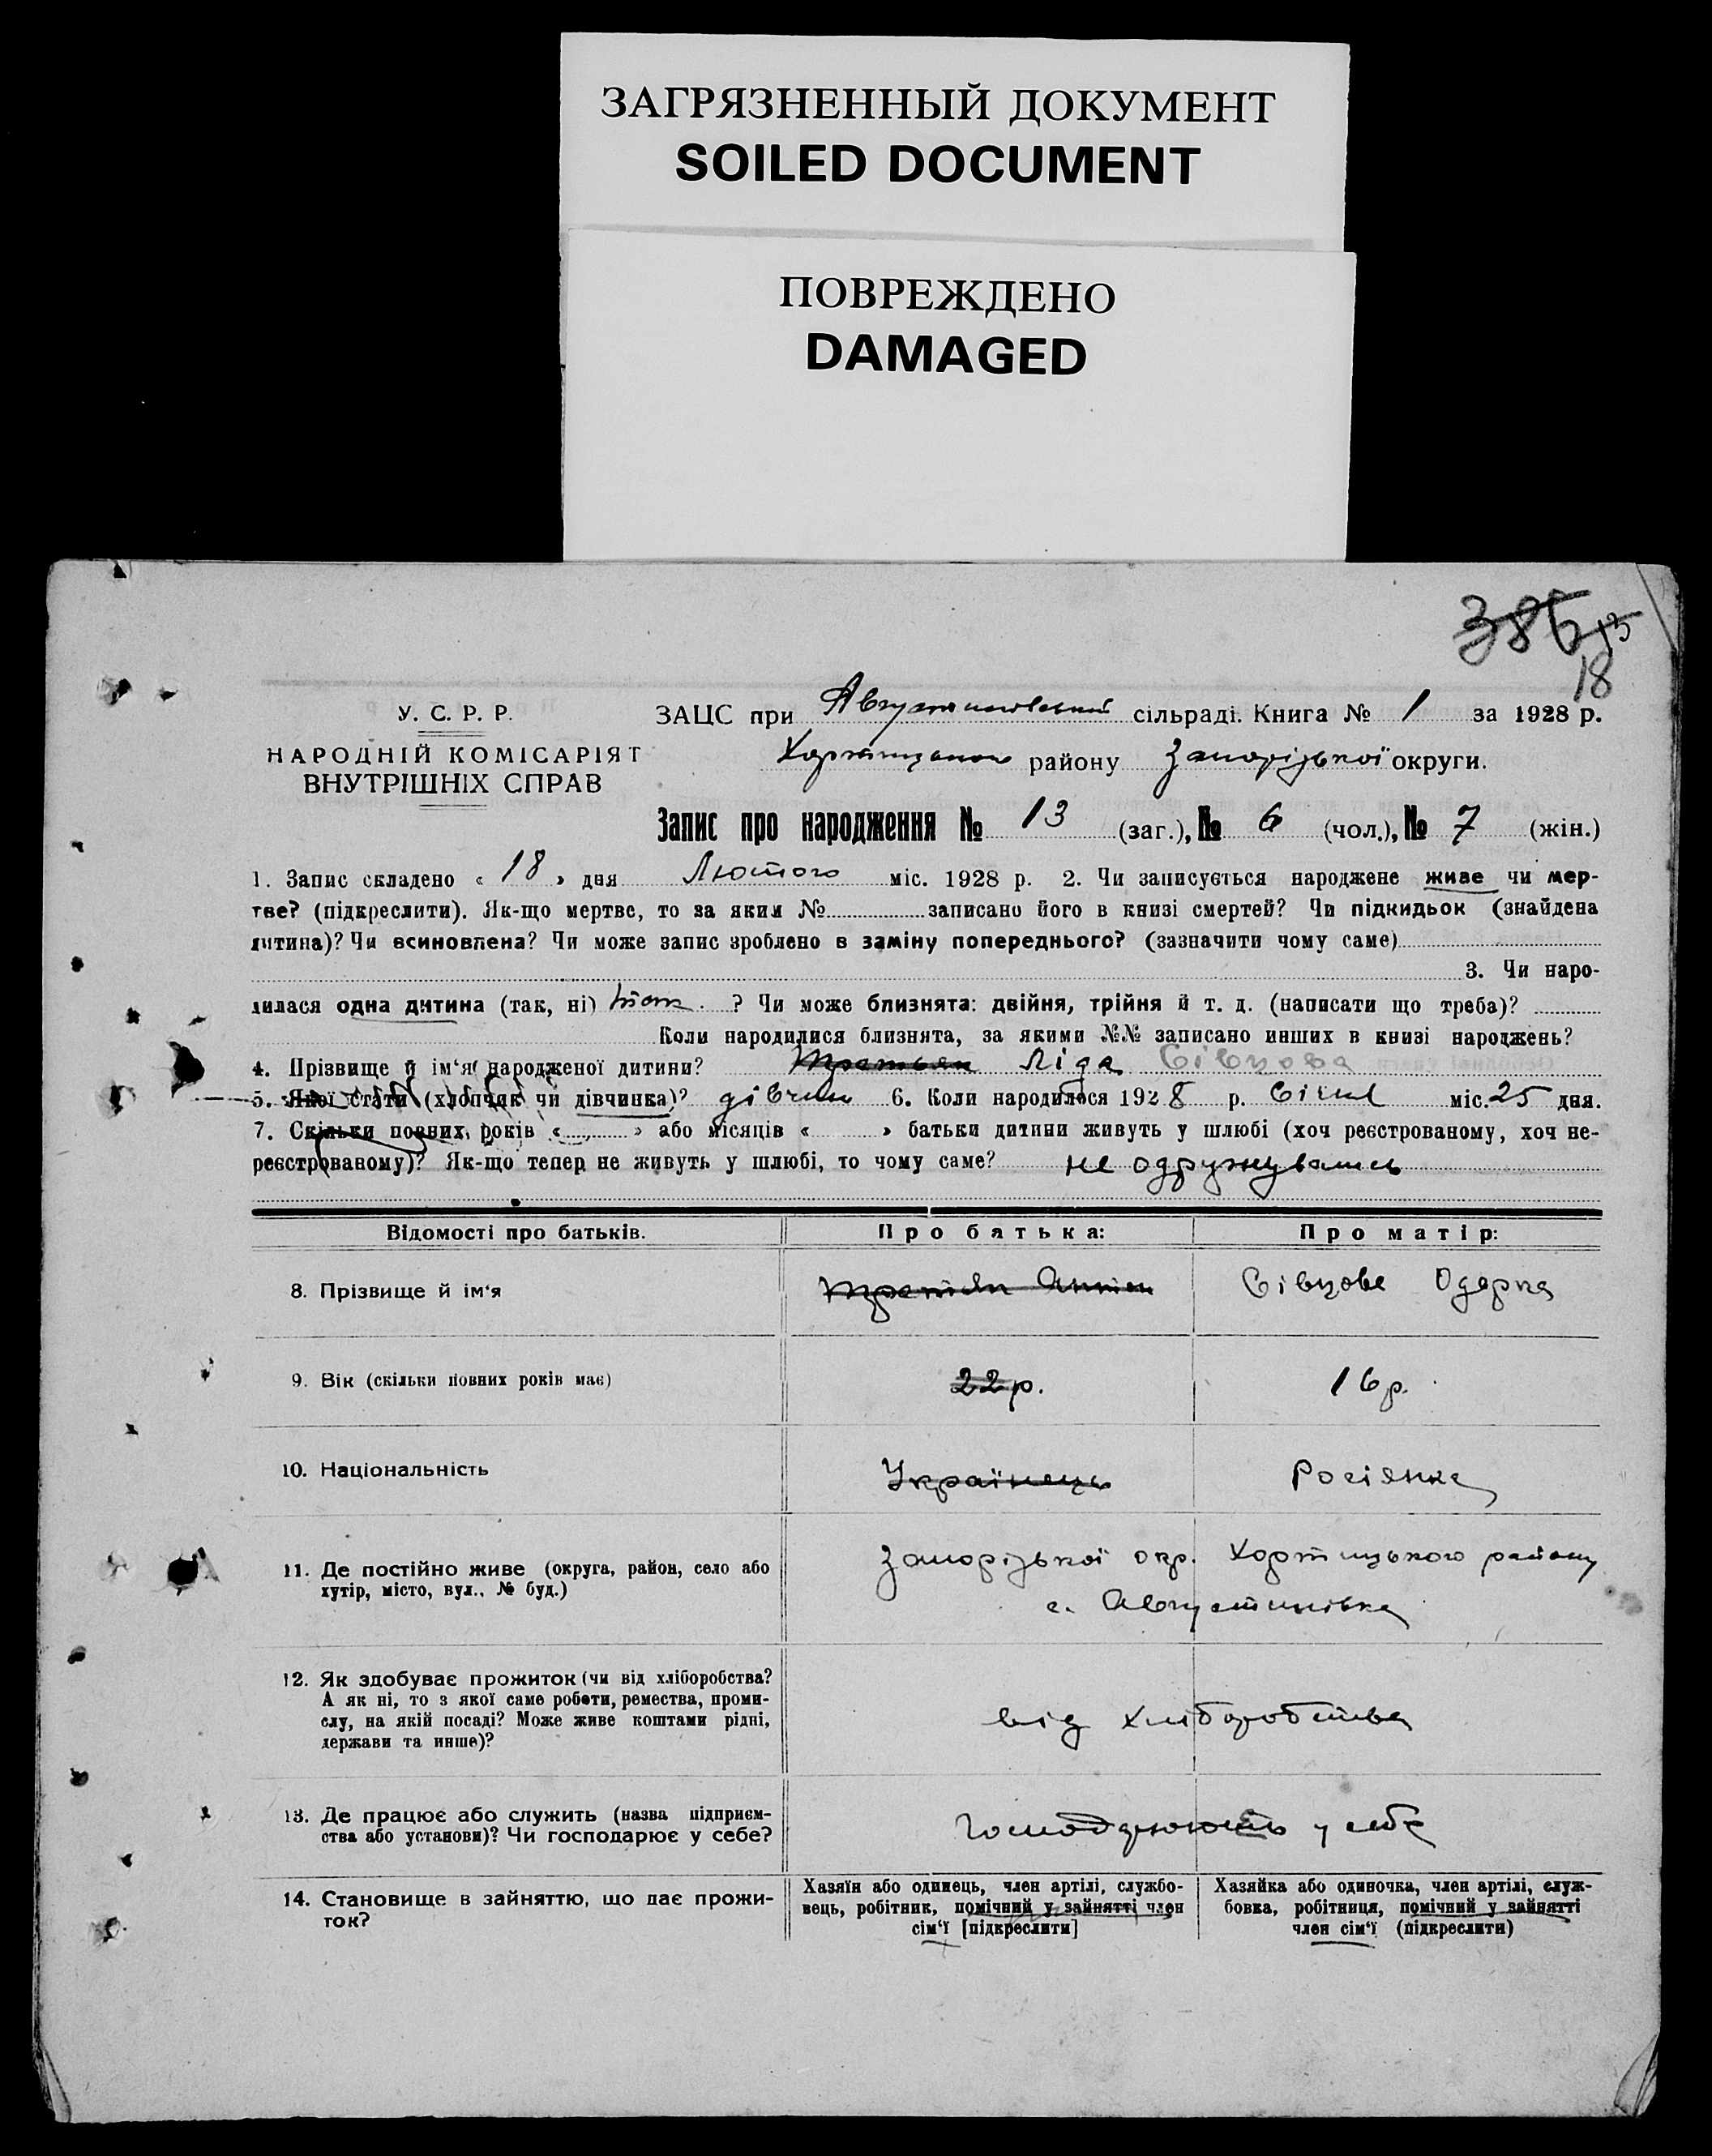 ЗАГРЯЗНЕННЫЙ ДОКУМЕНТ
SOILED DOCUMENT
ПОВРЕЖДЕНО
DAMAGED
386
13
18
У. С. Р. Р.
НАРОДНІЙ КОМІСАРІЯТ
ВНУТРІШНІХ СПРАВ
ЗАЦС при Августиновській сільраді. Книга № 1 за 1928 р.
Хортицького району Запорізької округи.
Запис про народження № 13 (заг.), № 6 (чол.), № 7 (жін.)
1. Запис складено « 18 » дня Лютого міс. 1928 р. 2. Чи записується народжене живе чи мер-
тве? (підкреслити). Як-що мертве, то за яким № записано його в книзі смертей? Чи підкидьок (знайдена
дитина)? Чи всиновлена? Чи може запис зроблено в заміну попереднього? (зазначити чому саме)
3. Чи наро-
дилася одна дитина (так, ні) так ? Чи може близнята: двійня, трійня й т. д. (написати що треба)?
Коли народилися близнята, за якими №№ записано инших в книзі народжень?
4. Прізвище й ім'я народженої дитини? Третьяк Ліда Сівцова
5. Якої статі (хлопчик чи дівчинка)? дівчин 6. Коли народилося 1928 р. Січня міс. 25 дня.
7. Скільки повних років « » або місяців « » батьки дитини живуть у шлюбі (хоч реєстрованому, хоч не-
реєстрованому)? Як-що тепер не живуть у шлюбі, то чому саме? не одружувались
Відомості про батьків. Про батька: Про матір:
8. Прізвище й ім'я Третяк Сівцова Одарка
9. Вік (скільки повних років має) 22 р. 16 р.
10. Національність Українець Росіянка
11. Де постійно живе (округа, район, село або
хутір, місто, вул., № буд.)
Запорізької окр. Хортицького району
с. Августинівка
12. Як здобуває прожиток (чи від хліборобства?
А як ні, то з якої саме роботи, ремества, проми-
слу, на якій посаді? Може живе коштами рідні,
держави та инше)?
від хліборобства
13. Де працює або служить (назва підприєм-
ства або установи)? Чи господарює у себе?
Господарюють у себе
14. Становище в зайняттю, що дає прожи-
ток?
Хазяїн або одинець, член артілі, службо-
вець, робітник, помічний у зайнятті член
сім'ї [підкреслити]
Хазяйка або одиночка, член артілі, служ-
бовка, робітниця, помічний у зайнятті
член сім'ї (підкреслити)